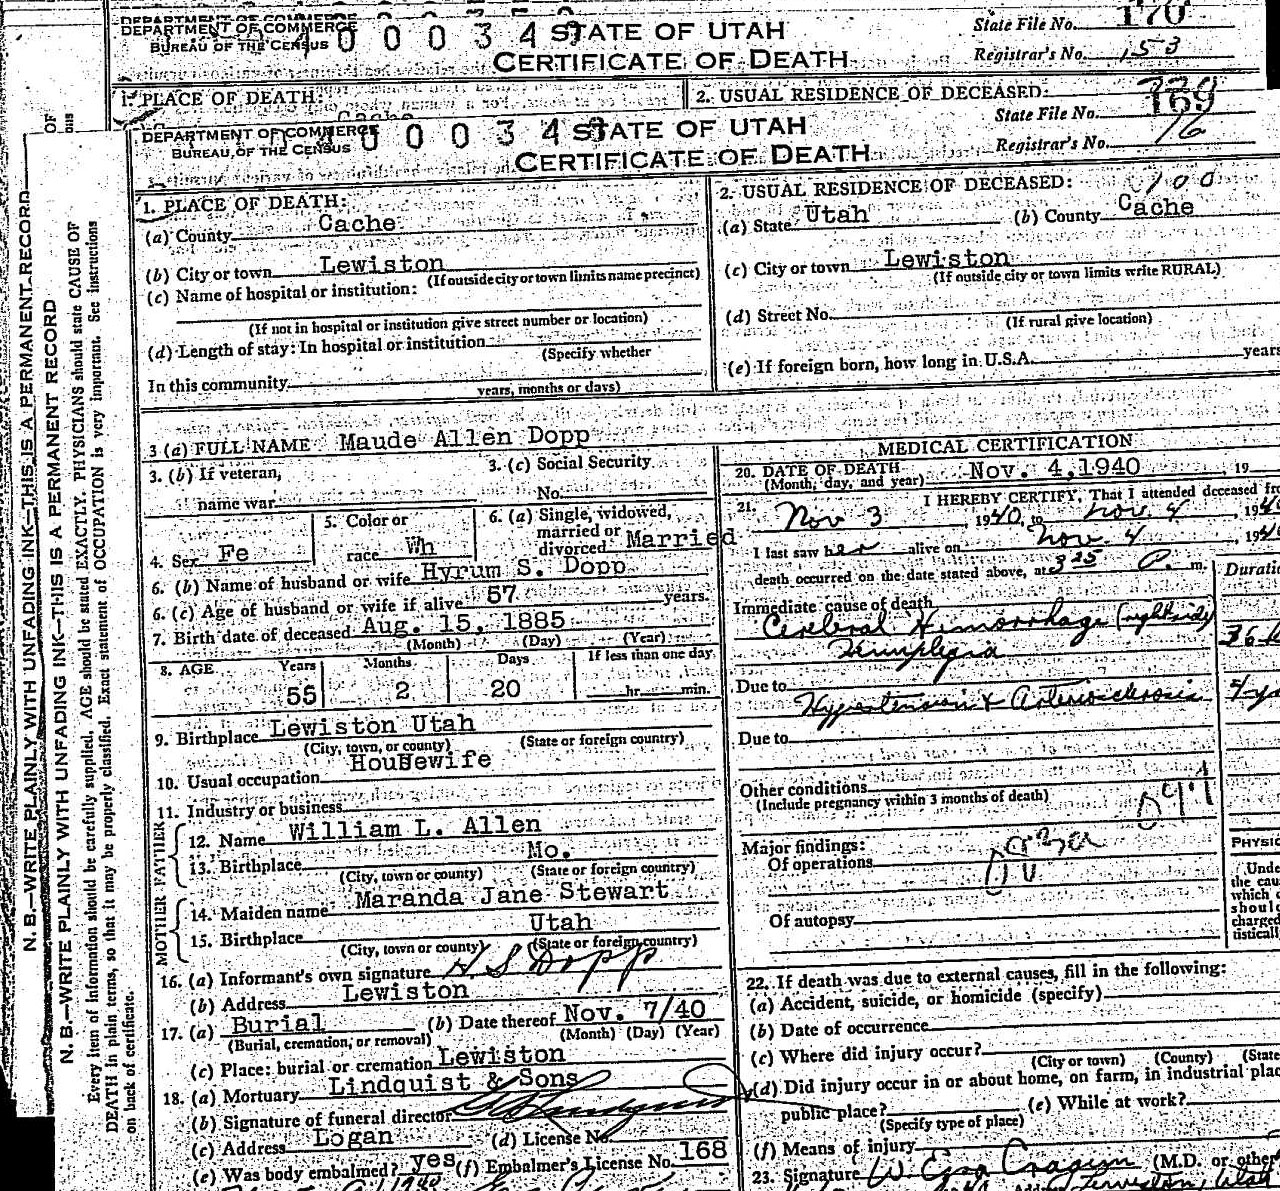 DEPARTMENT OF COMMERCE
BUREAU OF THE CENSUS
0 0 0 3 4
STATE OF UTAH
CERTIFICATE OF DEATH
State File No. 170
Registrar's No. 153
1. PLACE OF DEATH:
Cache
2. USUAL RESIDENCE OF DECEASED:
DEPARTMENT OF COMMERCE
BUREAU OF THE CENSUS
0 0 3 4
STATE OF UTAH
CERTIFICATE OF DEATH
State File No. 169
Registrar's No. 16
1. PLACE OF DEATH:
(a) County Cache
(b) City or town Lewiston
(If outside city or town limits name precinct)
(c) Name of hospital or institution:
(If not in hospital or institution give street number or location)
(d) Length of stay: In hospital or institution
(Specify whether
In this community
years, months or days)
2. USUAL RESIDENCE OF DECEASED: 100
(a) State Utah (b) County Cache
(c) City or town Lewiston
(If outside city or town limits write RURAL)
(d) Street No.
(If rural give location)
(e) If foreign born, how long in U.S.A. years
3 (a) FULL NAME Maude Allen Dopp
3. (b) If veteran,
name war
3. (c) Social Security
No.
4. Sex Fe
5. Color or
race Wh
6. (a) Single, widowed,
married or
divorced Married
6. (b) Name of husband or wife Hyrum S. Dopp
6. (c) Age of husband or wife if alive 57 years.
7. Birth date of deceased Aug. 15, 1885
(Month) (Day) (Year)
8. AGE Years Months Days If less than one day
55 2 20 hr. min.
9. Birthplace Lewiston Utah
(City, town, or county) (State or foreign country)
10. Usual occupation Housewife
11. Industry or business
FATHER
12. Name William L. Allen
13. Birthplace Mo.
(City, town or county) (State or foreign country)
MOTHER
14. Maiden name Maranda Jane Stewart
15. Birthplace Utah
(City, town or county) (State or foreign country)
16. (a) Informant's own signature H S Dopp
(b) Address Lewiston
17. (a) Burial (b) Date thereof Nov. 7/40
(Burial, cremation, or removal) (Month) (Day) (Year)
(c) Place: burial or cremation Lewiston
18. (a) Mortuary Lindquist & Sons
(b) Signature of funeral director
(c) Address Logan (d) License No.
(e) Was body embalmed? yes (f) Embalmer's License No. 168
MEDICAL CERTIFICATION
20. DATE OF DEATH Nov. 4, 1940 19
(Month, day, and year)
21. I HEREBY CERTIFY, That I attended deceased fro
Nov 3, 1940, to Nov 4, 194
I last saw her alive on Nov 4, 194
death occurred on the date stated above, at 3 25 P. m.
Duratio
Immediate cause of death
Cerebral Hemorrhage (right side)
Hemiplegia
36 h
Due to
Hypertension & Arteriosclerosis
Due to
Other conditions
(Include pregnancy within 3 months of death)
Major findings:
Of operations
Of autopsy
PHYSIC
Unde
the cau
which d
should
charged
tistically
22. If death was due to external causes, fill in the following:
(a) Accident, suicide, or homicide (specify)
(b) Date of occurrence
(c) Where did injury occur?
(City or town) (County) (State
(d) Did injury occur in or about home, on farm, in industrial plac
public place? (e) While at work?
(Specify type of place)
(f) Means of injury
23. Signature W Ezra Cragun (M.D. or other
Lewiston, Utah
N. B.—WRITE PLAINLY WITH UNFADING INK—THIS IS A PERMANENT RECORD
N. B.—WRITE PLAINLY WITH UNFADING INK—THIS IS A PERMANENT RECORD
Every item of information should be carefully supplied. AGE should be stated EXACTLY. PHYSICIANS should state CAUSE OF
DEATH in plain terms, so that it may be properly classified. Exact statement of OCCUPATION is very important. See instructions
on back of certificate.